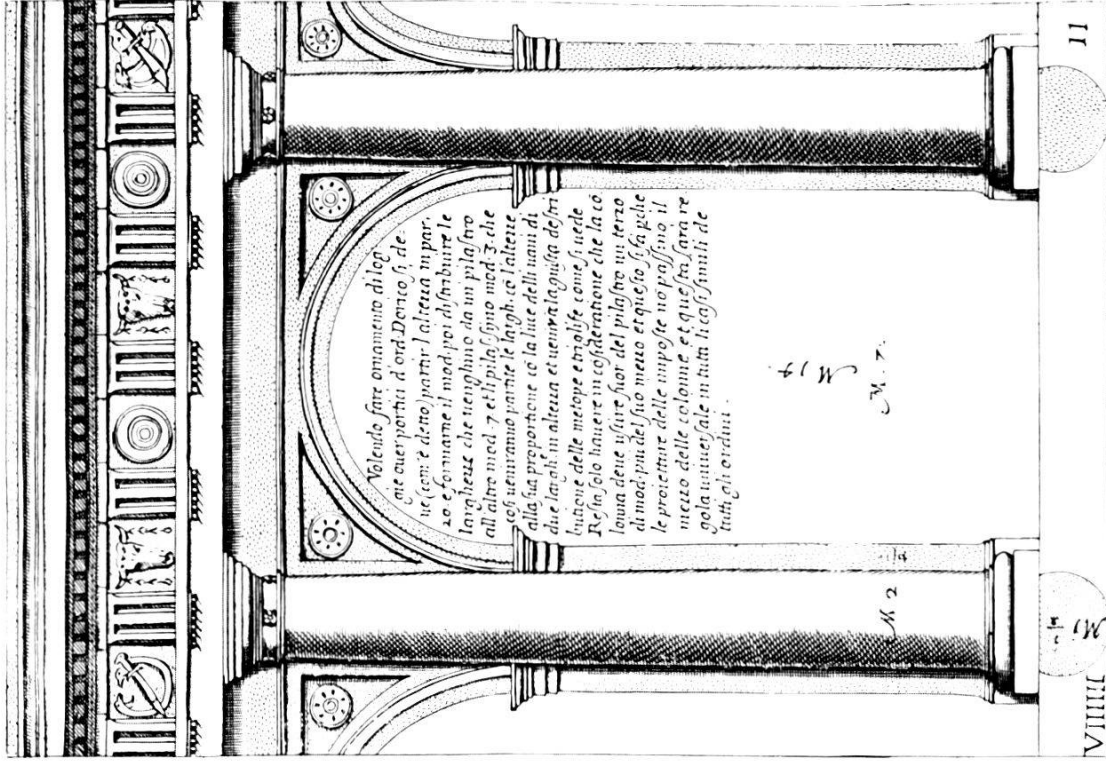 Volendo fare ornamento di log
gie ouer portici d'ord. Dorico si de
ue (com'è detto) partir l'alteza in par.
20 e formarne il mod. poi distribuire le
largheze che uenghino da un pilastro
all'altro mod. 7 et li pilastri sino mod. 3 che
cosi ueniranno partite le largh. cō l'alteze
alla sua proportione cō la luce delli uani di
due largh. in alteza et uenirà la giusta destri
butione delle metope e triglife come si uede
Resta solo hauere in cōsideratione che la co
lonna deue uscire fuor del pilastro un terzo
di mod. piu del suo mezo et questo si fa pche
le proietture delle imposte nō passino il
mezzo delle colonne et questa sarà re
gola uniuersale in tuti li casi simili de
tutti gli ordini.
M 14
M. 7.
M 2
M 1
VIIIII
11